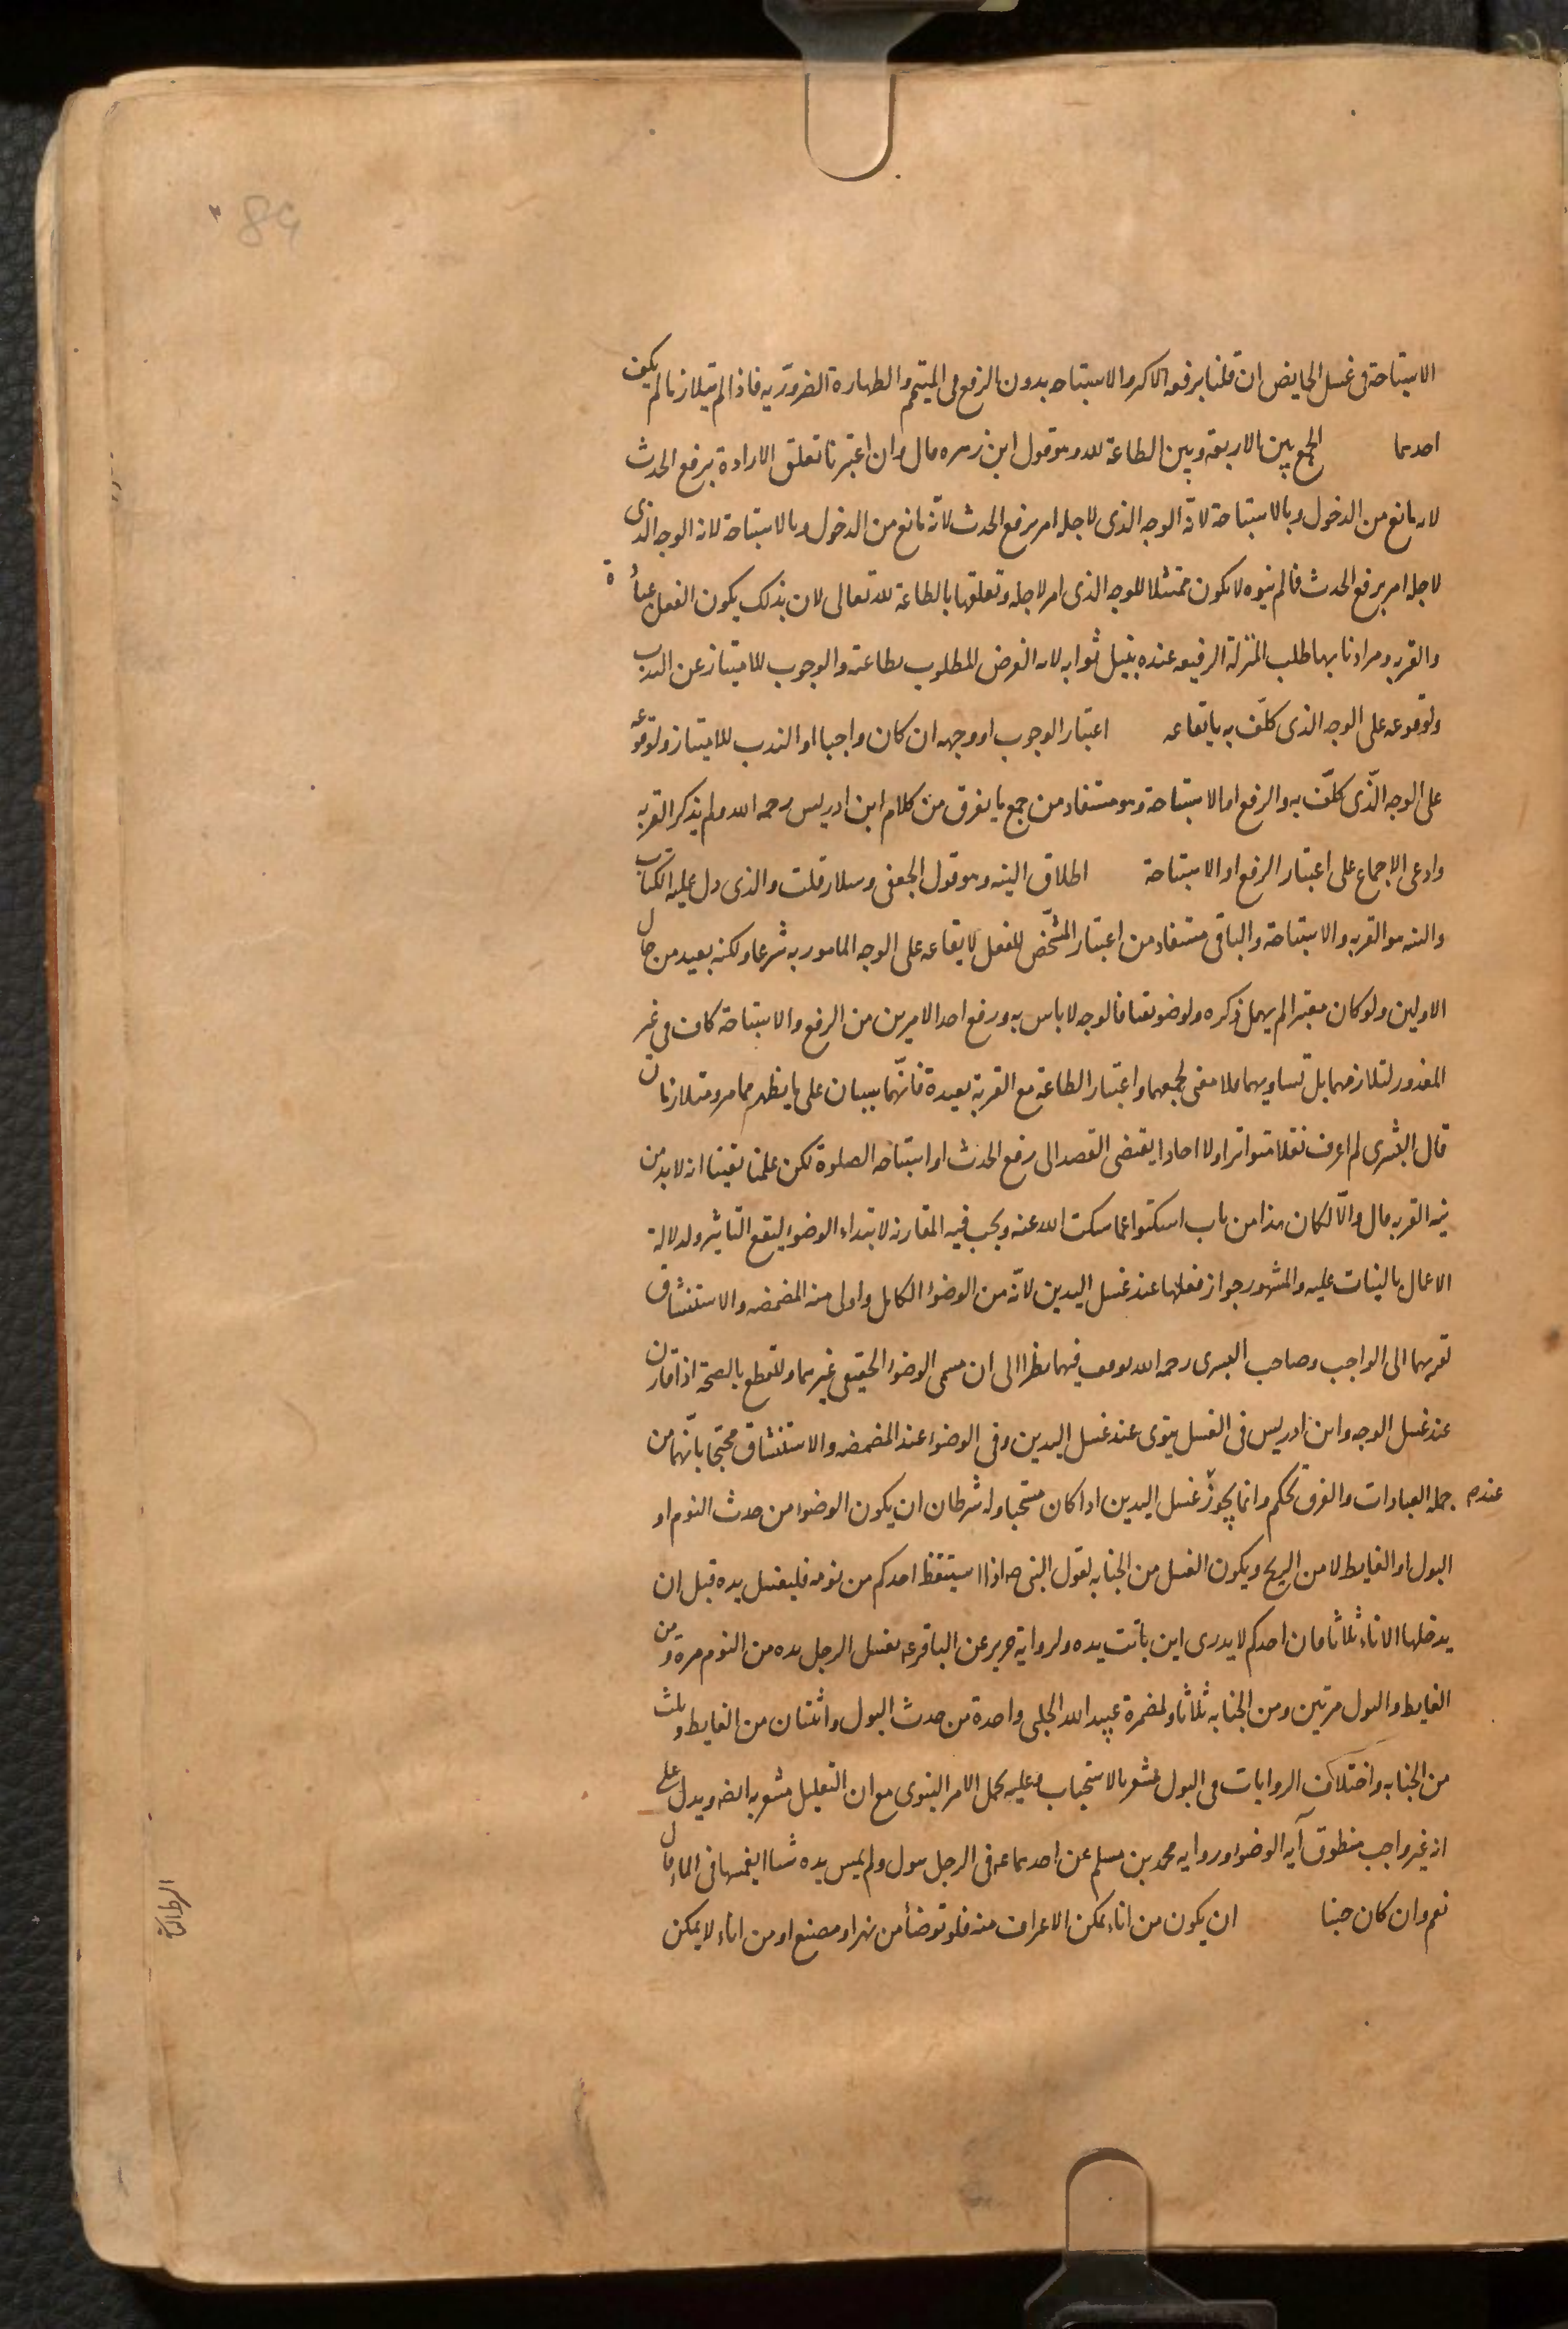 89
الاستباحة فى غسل الحايض ان قلنا برفعه الاكبر والاستباحه بدون الرفع فى المتيمم والطهارة الضرورّيه فاذا لم يتلازما لم يكف
احدهما الجمع بين الاربعة وبين الطاعة لله وهو قول ابن زهره قال وان اعتبرنا تعلق الارادة برفع الحدث
لانه مانع من الدخول وبالاستباحة لانّه الوجه الذى لاجله امر برفع الحدث لانّه مانع من الدخول وبالاستباحة لانه الوجه الذى
لاجله امر برفع الحدث فما لم ينوه لا يكون ممتثلا للوجه الذى امر لاجله وتعلقها بالطاعة لله تعالى لان بذلك يكون الفعل عبادة
والقربه ومرادنا بها طلب المنزلة الرفيعه عنده بنيل ثوابه لانه الغرض المطلوب بطاعته والوجوب للامتياز عن الندب
ولوقوعه على الوجه الذى كلّف به بايقاعه اعتبار الوجوب او وجهه ان كان واجبا او الندب للامتياز ولوقوعه
على الوجه الّذى كلّف به والرفع او الاستباحة وهو مستفاد من جمع ما يفرق من كلام ابن ادريس رحمه الله ولم يذكر القربه
وادعى الاجماع على اعتبار الرفع او الاستباحة اطلاق النيه وهو قول الجعفى وسلار قلت والذى دل عليه الكتاب
والسنه هو القربه والاستباحة والباقى مستفاد من اعتبار المشّخص للفعل لايقاعه على الوجه المامور به شرعا ولكنه بعيد من حال
الاولين ولو كان معتبرا لم يهمل ذكره ولو ضويقنا فالوجه لا باس به ورفع احد الامرين من الرفع والاستباحة كاف فى غير
المعذور لتلازمهما بل تساويهما فلا معنى لجمعهما واعتبار الطاعة مع القربة بعيدة فانّهما سيان على ما يظهر مما مر ومتلازمان
قال البشرى لم اعرف نقلا متواترا ولا احادا يقتضى القصد الى رفع الحدث او استباحه الصلوة لكن علمنا يقينا انه لا بد من
نيه القربه قال والّا لكان هذا من باب اسكتوا عما سكت الله عنه ويجب فيه المقارنه لابتداء الوضوء ليقع التاثير ولدلالة
الاعمال بالنيات عليه والمشهور جواز فعلها عند غسل اليدين لانّه من الوضوء الكامل واولى منه المضمضه والاستنشاق
لقربهما الى الواجب وصاحب البشرى رحمه الله توقف فيهما نظرا الى ان مسمى الوضوء الحقيقى غيرهما وللقطع بالصحة اذا قارن
عند غسل الوجه وابن ادريس فى الغسل ينوى عند غسل اليدين وفى الوضوء عند المضمضه والاستنشاق محتجا بانّهما من
جمله العبادات والفرق تحكم وانما يجوز عند غسل اليدين اذا كان مستحبا وله شرطان ان يكون الوضوء من حدث النوم او
البول او الغايط لا من الريح ويكون الغسل من الجنابه لقول النبى صه اذا استيقظ احدكم من نومه فليغسل يده قبل ان
يدخلها الاناء ثلاثا فان احدكم لا يدرى اين باتت يده ولرواية حريز عن الباقر عه يغسل الرجل يده من النوم مرة ومن
الغايط والبول مرتين ومن الجنابه ثلاثا ولمضمرة عبيد الله الحلبى واحدة من حدث البول واثنتان من الغايط وثلث
من الجنابه واختلاف الروايات فى البول مشعر بالاستحباب وعليه يحمل الامر النبوى مع ان التعليل مشعر به ايضه ويدل على
انه غير واجب منطوق آيه الوضوء ورواية محمد بن مسلم عن احدهما عه فى الرجل يبول ولم يمس يده شيئا ايغمسها فى الماء قال
نعم وان كان جنبا ان يكون من اناء يمكن الاغتراف منه فلو توضأ من نهر او مصنع او من اناء لا يمكن